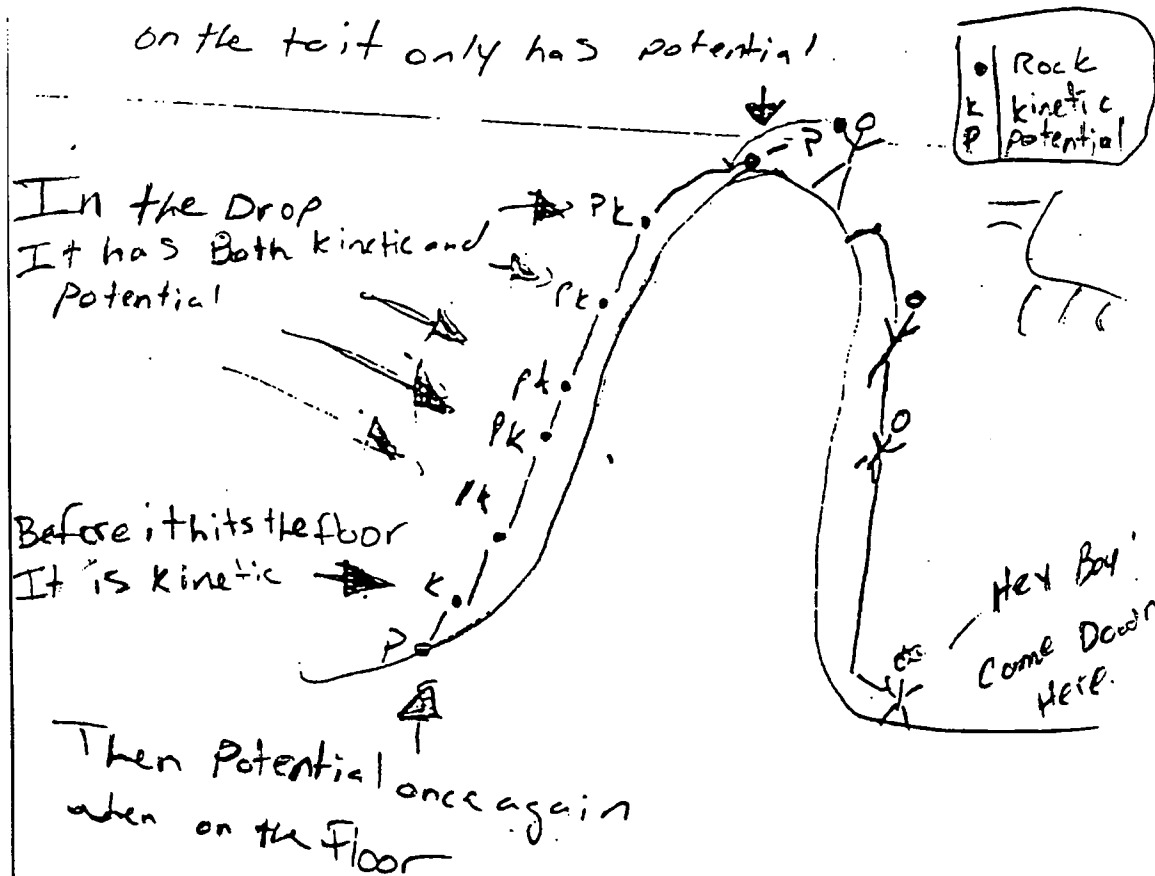 on the to it only has potential
• Rock
K kinetic
P potential
P
In the Drop
It has Both kinetic and
Potential
PK
PK
PK
PK
PK
Before it hits the floor
It is kinetic
K
P
Hey Boy!
Come Down
Here.
Then Potential once again
when on the Floor